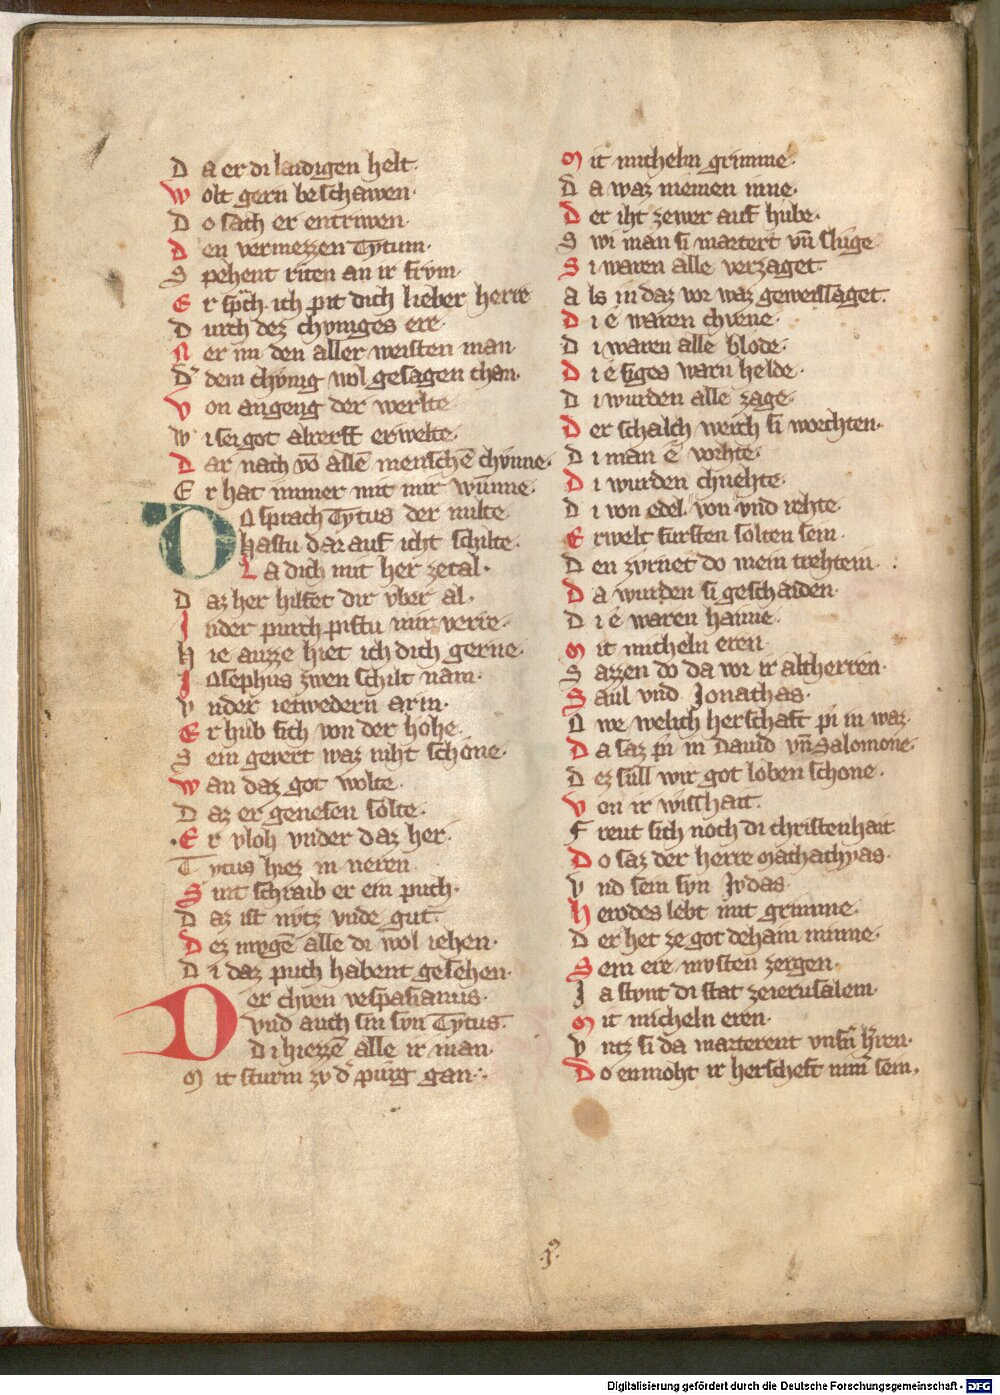 Da er di laidigen helt·
Wolt gern beschawen·
Do sach er entriwen·
Den vermezzen Tytum·
Spehent riten an ir frvm·
Er sp̄ch· ich pit dich lieber herre
Durch dez chvniges ere·
Ner im den aller weisten man·
Dˢ dem chvnig wol gesagen chan·
Von angeng der werlte
Wi sei got alrerst erwelte·
Dar nach vō allē menschē chvnne·
Er hat immer mit mir wunne·
Do sprach Tytus der milte
hastu dar auf icht schilte·
La dich mit her zetal·
Daz her hilfet dir vber al·
Inder purch pistu mir verre·
Hie auzze hiet ich dich gerne·
Iosephus zwen schilt nam·
Vnder ietwedern arm·
Er hub sich von der hohe·
Sein gevert waz niht schone·
Wan daz got wolte·
Daz er genesen solte·
·Er vloh vnder daz her·
Tytus hiez in neren
Sint schraib er ein puch·
Daz ist nvtz vnde gut·
Dez mvgē alle di wol iehen·
Di daz puch habent gesehen·
Der chven vespasianus·
vnd auch sin svn Tytus·
Di hiezzē alle ir man·
Mit sturm zv dˢ purg gan·:·
Mit micheln grimme·
Da waz niemen inne·
Der iht zewer auf hube·
Swi man si martert vn̄ sluge
Si waren alle verzaget·
Als in daz vor waz geweissaget·
Di e waren chvene·
Di waren alle blode·
Di e siges warn helde·
Di wurden alle zage·
Der schalch werch si worchten·
Di man e vorhte·
Di wurden chnehte·
Di von edel von vnd rehte·
Erwelt fursten solten sein·
Den zvrnet do mein trehtein·
Da wurden si geschaiden·
Di e waren hanne·
Mit micheln eren
Sazzen do da vor ir altherren·
Saul vnd Jonathas·
Owe welich herschaft pi in waz·
Da saz pi in Dauid vn̄ Salomone·
Dez sull wir got loben schone·
Von ir wisshait·
Freut sich noch di christenhait
Do saz der herre Mathathyas·
Vnd sein svn Jvdas·
Herodes lebt mit grimme·
Der het ze got dehain minne·
Sein ere mvsten zergen·
Ja stvnt di stat zeierusalem·
Mit micheln eren·
Vntz si da marterent vnsn̄ hˢren·
Do enmoht ir herscheft nim̄ sein·
Digitalisierung gefördert durch die Deutsche Forschungsgemeinschaft - DFG